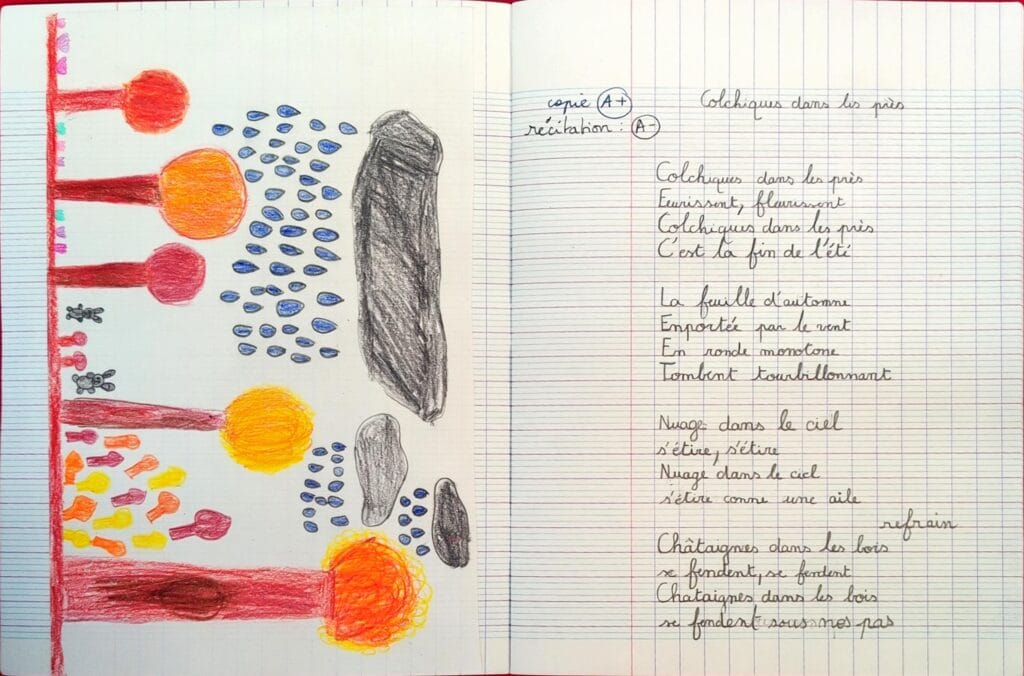 copie A+
récitation : A-
Colchiques dans les près
Colchiques dans les près
Eurissent, fleurissent
Colchiques dans les près
C'est la fin de l'été
La feuille d'automne
Enportée par le vent
En ronde monotone
Tombent tourbillonnant
Nuage dans le ciel
s'étire, s'étire
Nuage dans le ciel
s'étire conne une aile
refrain
Châtaignes dans les bois
se fendent, se fendent
Chataignes dans les bois
se fendent sous nos pas